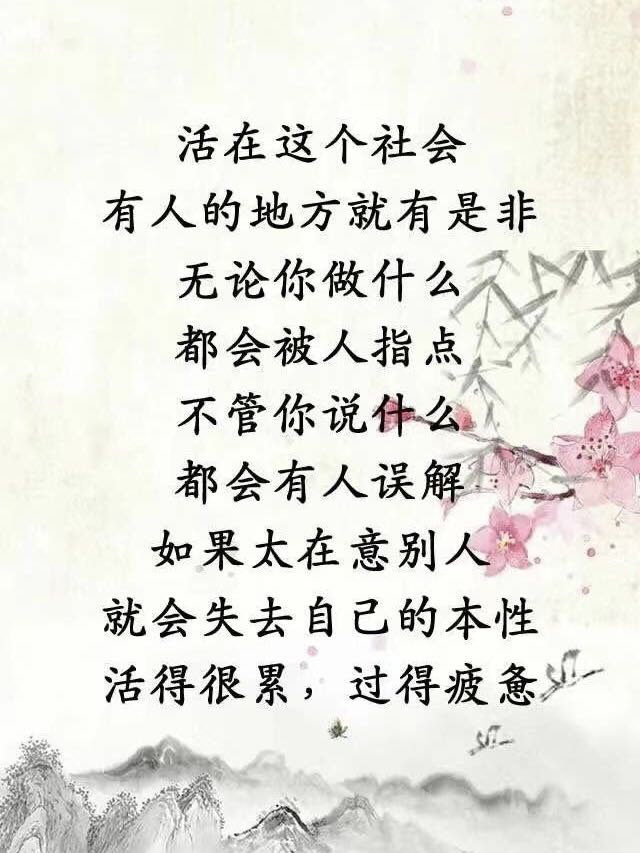 活在这个社会
有人的地方就有是非
无论你做什么
都会被人指点
不管你说什么
都会有人误解
如果太在意别人
就会失去自己的本性
活得很累，过得疲惫